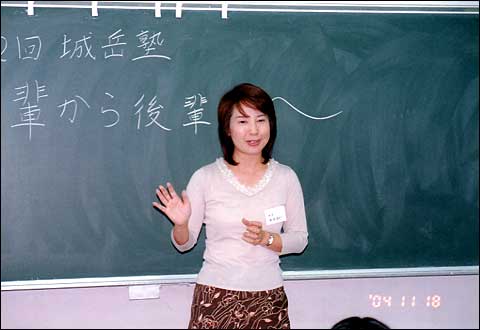 2回 城岳塾
輩から後輩へ
'04 11 18